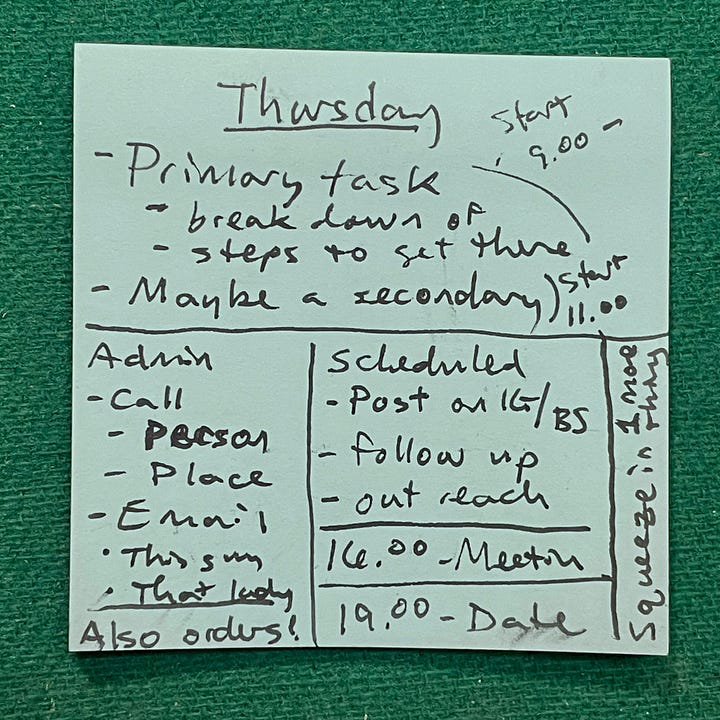 Thursday
Start
9.00 -
- Primary task
- break down of
- steps to get there
- Maybe a secondary)
Start
11.00
Admin
- Call
- Person
- Place
- Email
• This guy
• That lady
Also orders!
Scheduled
- Post on IG/BS
- follow up
- out reach
16.00 - Meeting
19.00 - Date
Squeeze in 1 more
thing